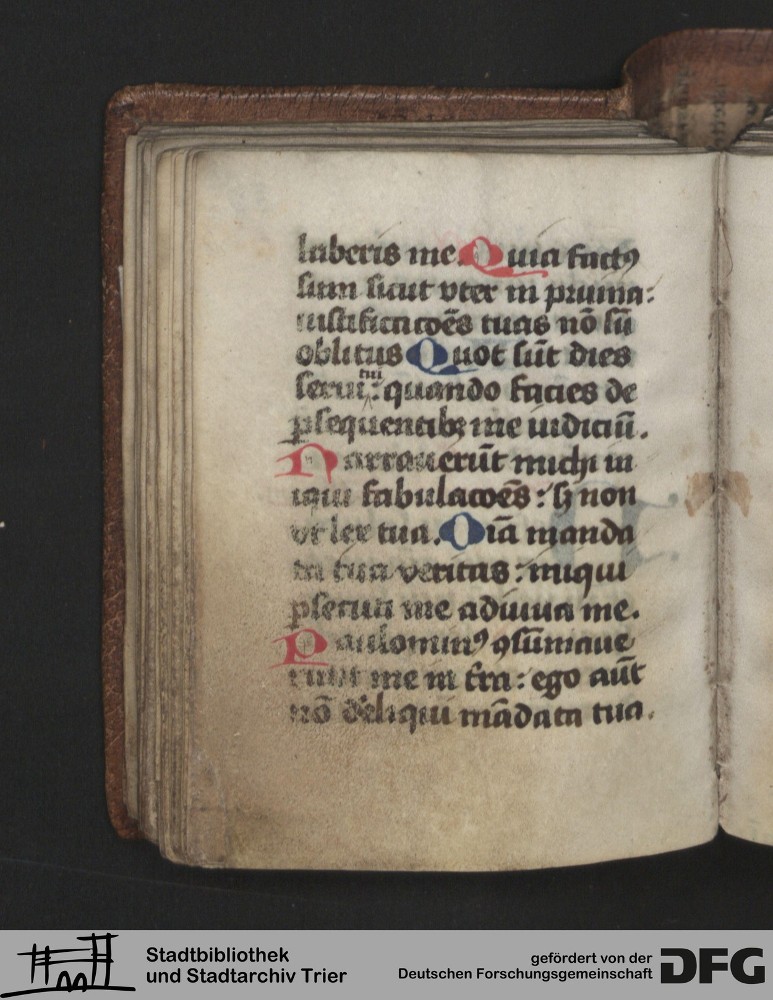 laberis me. Quia factꝰ
sum sicut vter in pruina:
iustificacōēs tuas nō sū
oblitus Quot sūt dies
serui tui: quando facies de
ꝑsequentibꝫ me iudiciū.
Narrauerūt michi in
iqui fabulacōēs: sꝫ non
vt lex tua. Oīa manda
ta tua veritas: iniqui
ꝑsecuti me adiuua me.
Paulominꝰ ꝯsūmaue
runt me in t̄ra: ego aūt
nō dereliqui mādata tua.
Stadtbibliothek
und Stadtarchiv Trier
gefördert von der
Deutschen Forschungsgemeinschaft
DFG